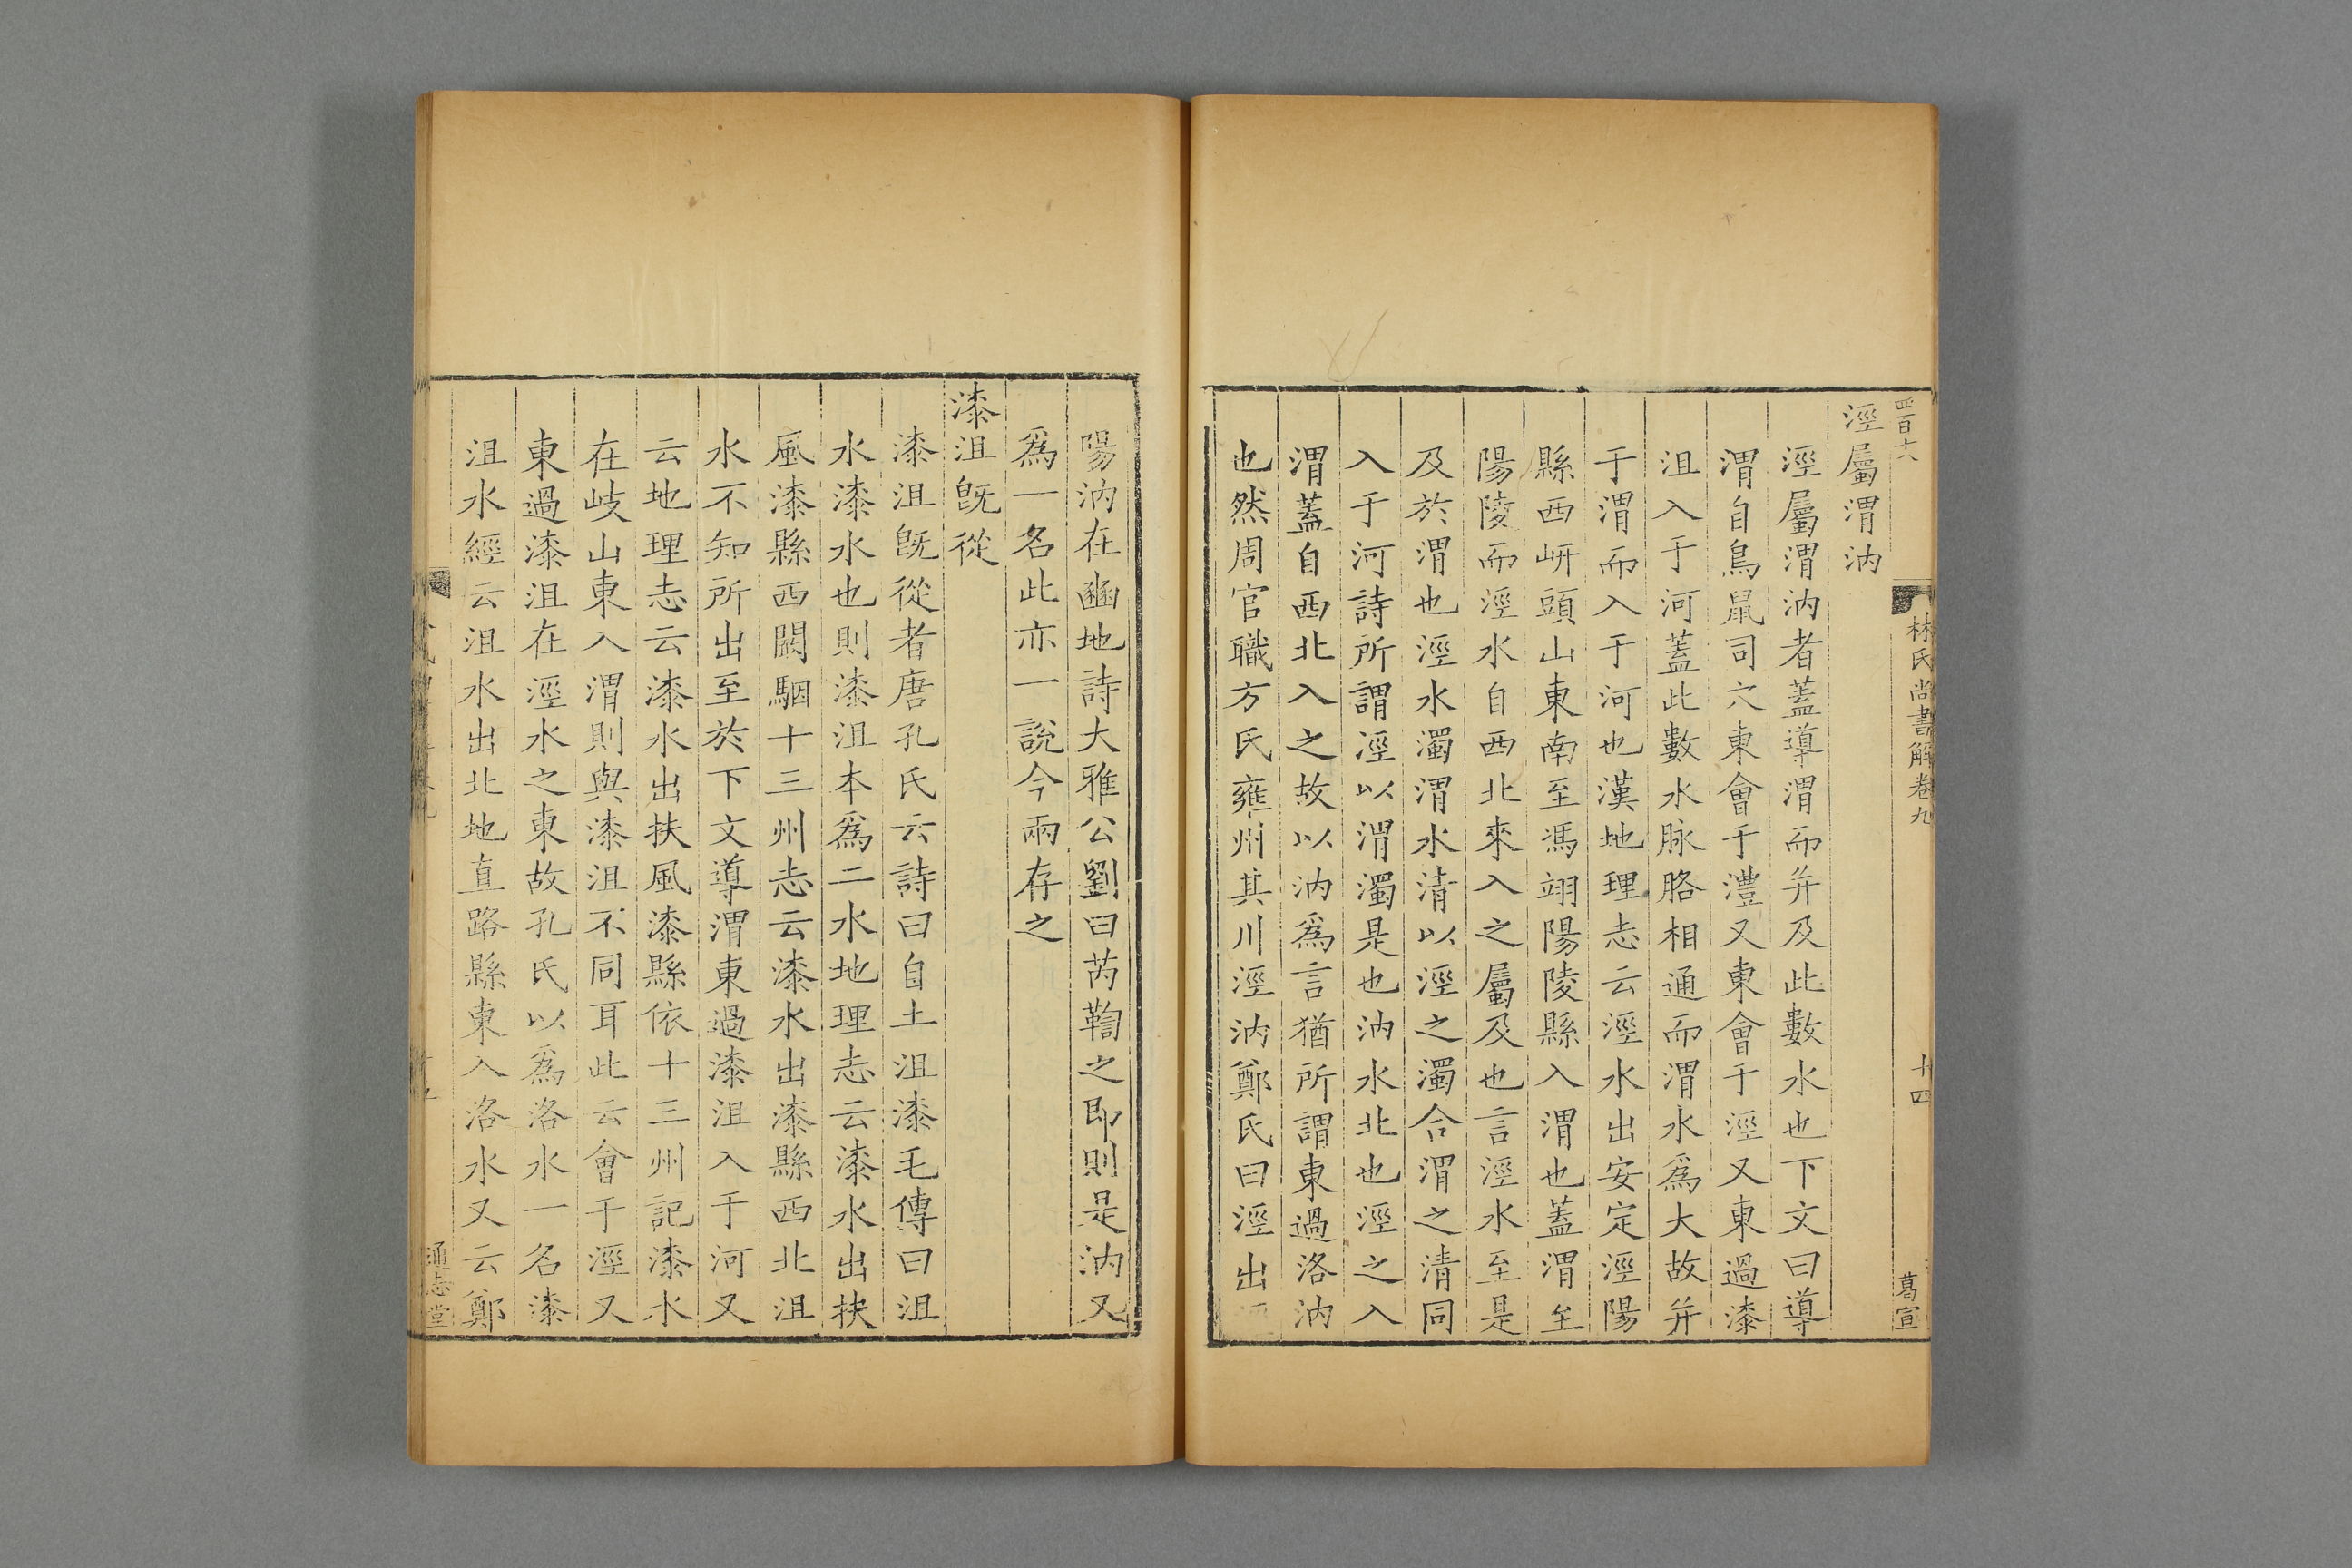 四百十八
林氏尚書解卷九
十四
葛宣
涇屬渭汭
涇屬渭汭者蓋導渭而并及此數水也下文曰導
渭自鳥鼠司穴東會于澧又東會于涇又東過漆
沮入于河蓋此數水脉胳相通而渭水爲大故并
于渭而入于河也漢地理志云涇水出安定涇陽
縣西岍頭山東南至馮翊陽陵縣入渭也蓋渭至
陽陵而涇水自西北來入之屬及也言涇水至是
及於渭也涇水濁渭水清以涇之濁合渭之清同
入于河詩所謂涇以渭濁是也汭水北也涇之入
渭蓋自西北入之故以汭爲言猶所謂東過洛汭
也然周官職方氏雍州其川涇汭鄭氏曰涇出
陽汭在豳地詩大雅公劉曰芮鞫之即則是汭又
爲一名此亦一說今兩存之
漆沮旣從
漆沮旣從者唐孔氏云詩曰自土沮漆毛傳曰沮
水漆水也則漆沮本爲二水地理志云漆水出扶
風漆縣西闞駰十三州志云漆水出漆縣西北沮
水不知所出至於下文導渭東過漆沮入于河又
云地理志云漆水出扶風漆縣依十三州記漆水
在岐山東入渭則與漆沮不同耳此云會于涇又
東過漆沮在涇水之東故孔氏以爲洛水一名漆
沮水經云沮水出北地直路縣東入洛水又云鄭
通志堂